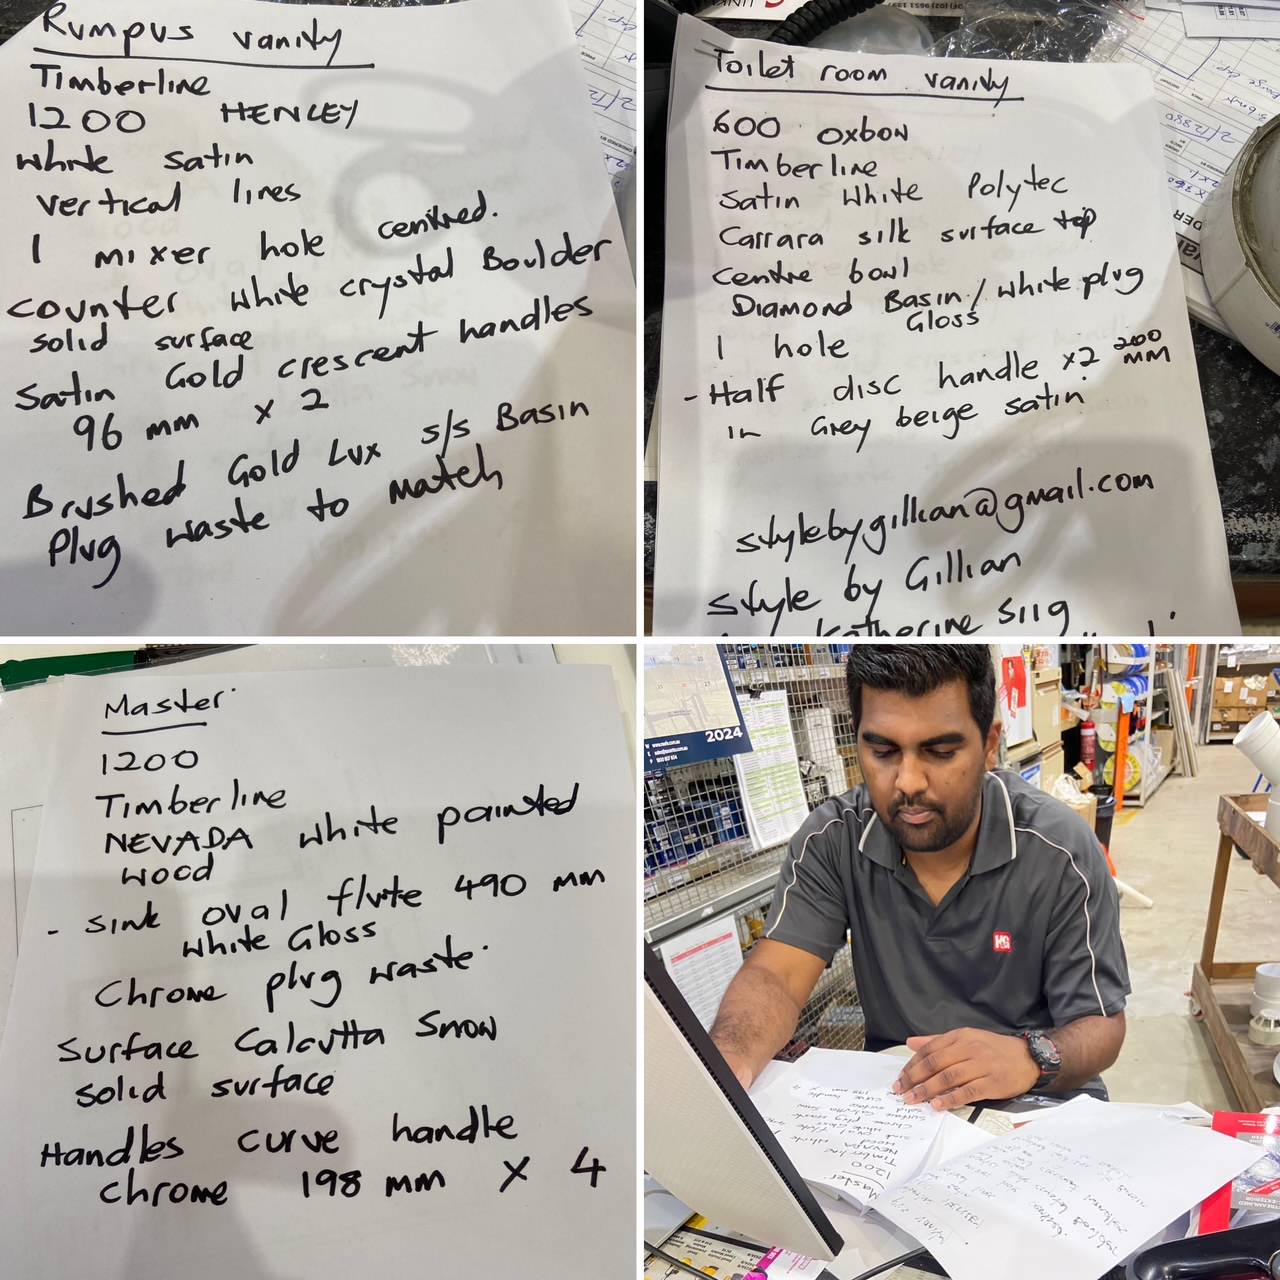 Rumpus vanity
Timberline
1200 HENLEY
white satin
vertical lines
1 mixer hole centred.
counter white crystal Boulder
solid surface
Satin Gold crescent handles
96 mm x 2
Brushed Gold Lux s/s Basin
Plug waste to match
Toilet room vanity
600 oxbow
Timberline
Satin White Polytec
Carrara silk surface top
centre bowl
Diamond Basin / white plug
Gloss
1 hole
- Half disc handle x2 200
mm
in Grey beige satin
stylebygillian@gmail.com
style by Gillian
Katherine Siig
Master
1200
Timberline
NEVADA white painted
wood
- sink oval flute 490 mm
white Gloss
Chrome plug waste.
Surface Calcutta Snow
solid surface
Handles curve handle
chrome 198 mm x 4
2024
HG
Master
1200
Timberline
NEVADA white
wood